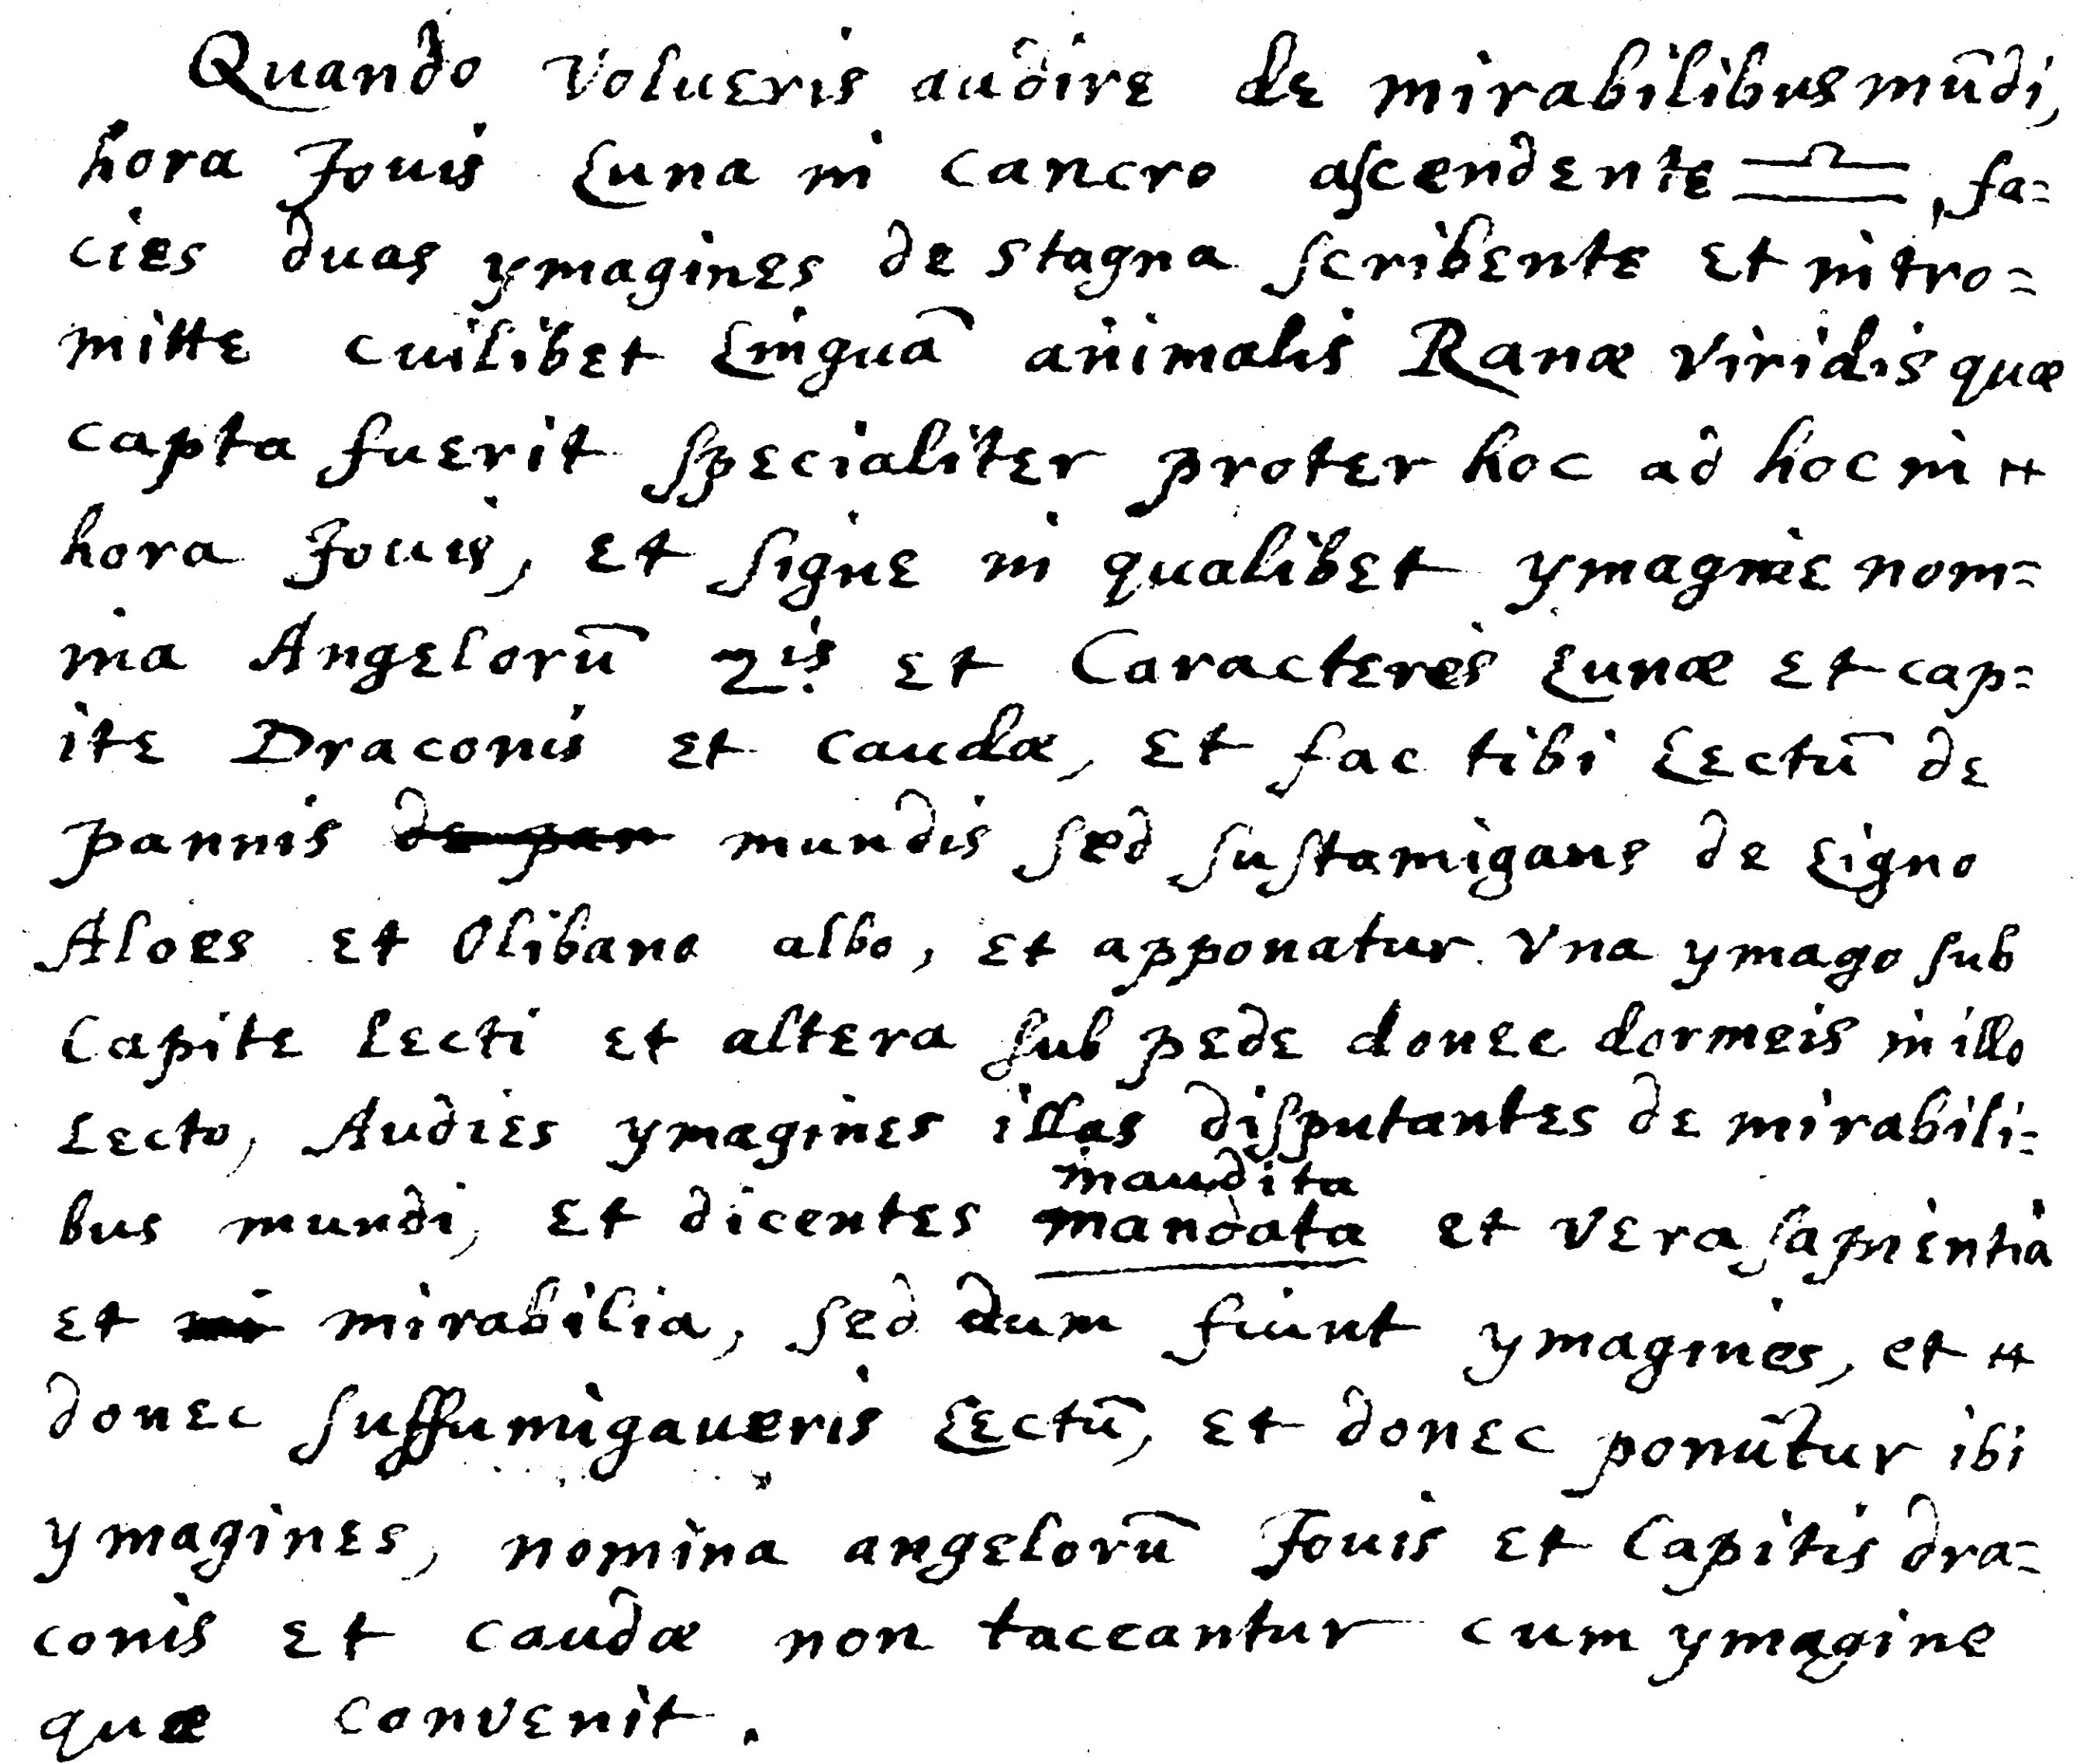 Quando Volueris audire de mirabilibus mūdi,
hora Jouis Luna in Cancro aſcendente ♎, fa=
cies duas ymagines de stagna ſcribente et intro=
mitte cuilibet Linguā animalis Ranæ viridis quæ
capta fuerit ſpecialiter proter hoc ad hoc in
hora Jouis, et ſigne in qualibet ymagine nom=
ina Angelorū ♃is et Caracteres Lunæ et cap=
ite Draconis et caudæ, et fac tibi Lectū de
pannis de pan mundis ſed ſuſtamigans de Ligno
Aloes et Olibano albo, et apponatur Vna ymago ſub
Capite Lecti et altera ſub pede donec dormeis in illo
Lecto, Audies ymagines illas diſputantes de mirabili=
maudita
bus mundi, et dicentes mandata et Vera ſapientia
et mi mirabilia, ſed dum fiunt ymagines, et
donec ſuffumigaueris Lectū, et donec ponūtur ibi
ymagines, nomina angelorū Jouis et Capitis dra=
conis et caudæ non taceantur cum ymagine
quæ convenit.